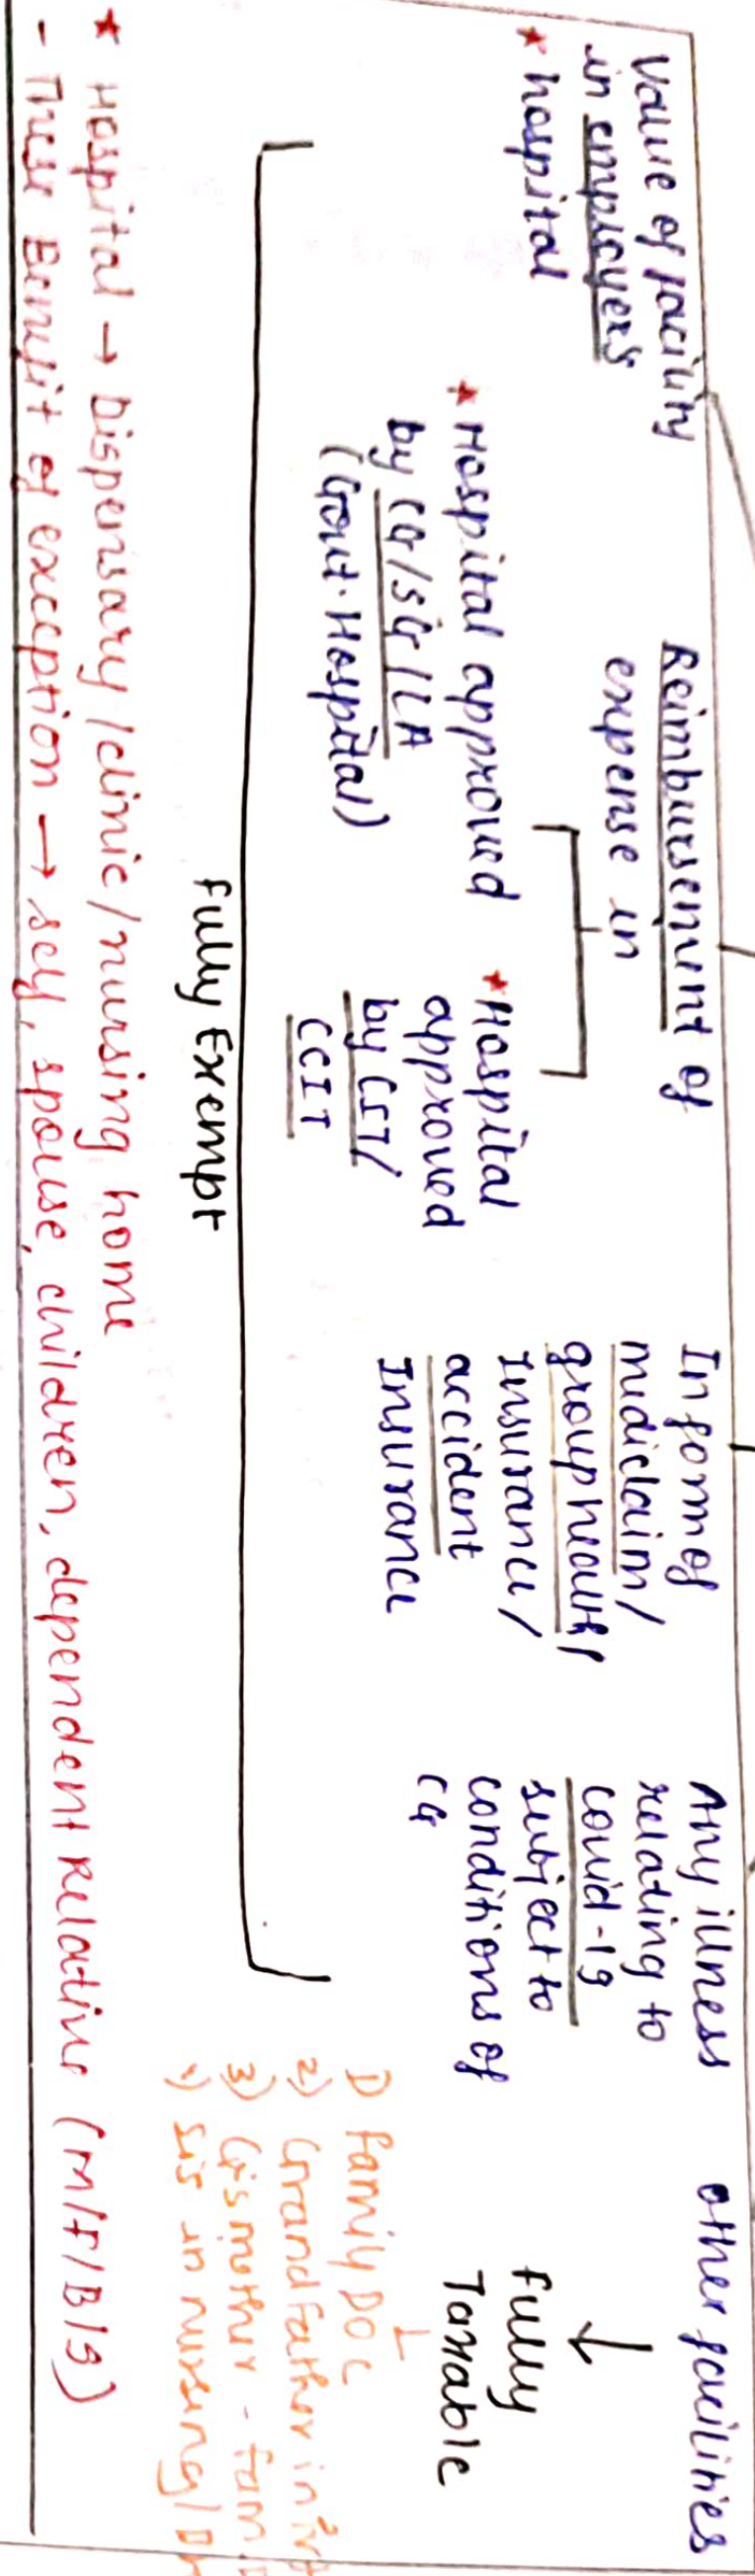 Value of facility
in employers
* hospital
Reimbursement of
expense in
* Hospital approved
by CG/SG/LA
(Govt. Hospital)
* Hospital
approved
by CIT/
CCIT
In form of
mediclaim/
group health/
Insurance/
accident
Insurance
Any illness
relating to
covid-19
subject to
conditions of
CG
other facilities
↓
fully
Taxable
fully Exempt
1) family Doc
2) Grand father in
3) G's mother - fam.
4) sis in nursing/
* Hospital → Dispensary/clinic/nursing home
- These Benefit of exception → self, spouse, children, dependent Relative (M/F/B/S)